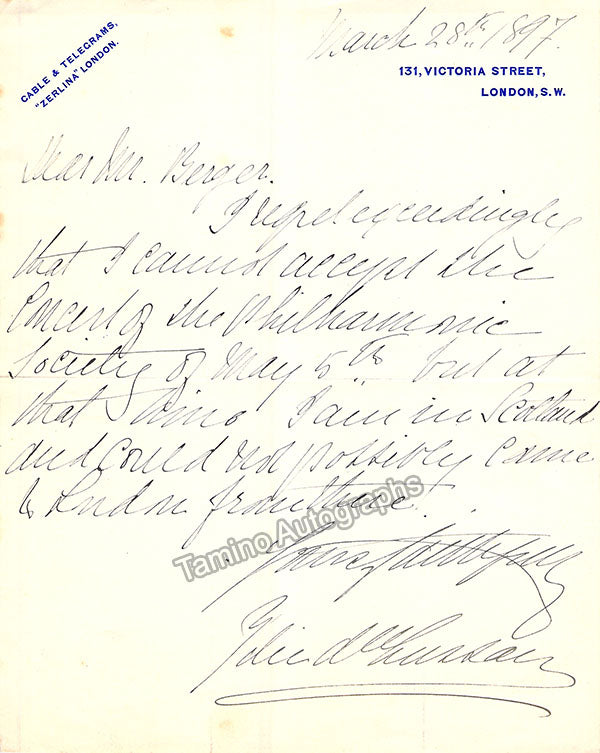 March 28th. 1897.
CABLE & TELEGRAMS,
"ZERLINA" LONDON.
131, VICTORIA STREET,
LONDON, S.W.
Dear Mr. Berger.
I regret exceedingly
that I cannot accept the
Concert of the Philharmonic
Society of May 5th. but at
that time I am in Scotland
and could not possibly come
to London from there.
Tamino Autographs
Yours faithfully
Zélie de Lussan